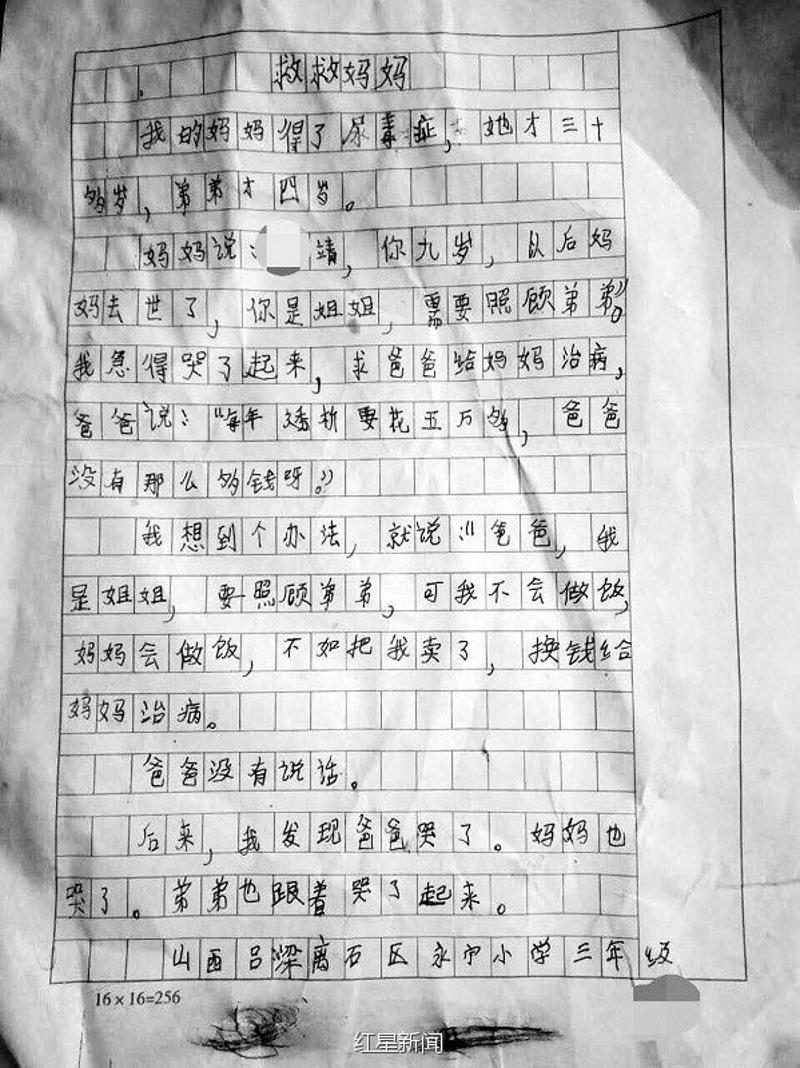 救救妈妈
我的妈妈得了尿毒症，她才三十
多岁，弟弟才四岁。
妈妈说：靖，你九岁，以后妈
妈去世了，你是姐姐，需要照顾弟弟”。
我急得哭了起来，求爸爸给妈妈治病，
爸爸说：“每年透析要花五万多，爸爸
没有那么多钱呀。”
我想到个办法，就说：“爸爸，我
是姐姐，要照顾弟弟，可我不会做饭，
妈妈会做饭，不如把我卖了，换钱给
妈妈治病。
爸爸没有说话。
后来，我发现爸爸哭了。妈妈也
哭了。弟弟也跟着哭了起来。
山西吕梁离石区永宁小学三年级
16×16=256
红星新闻